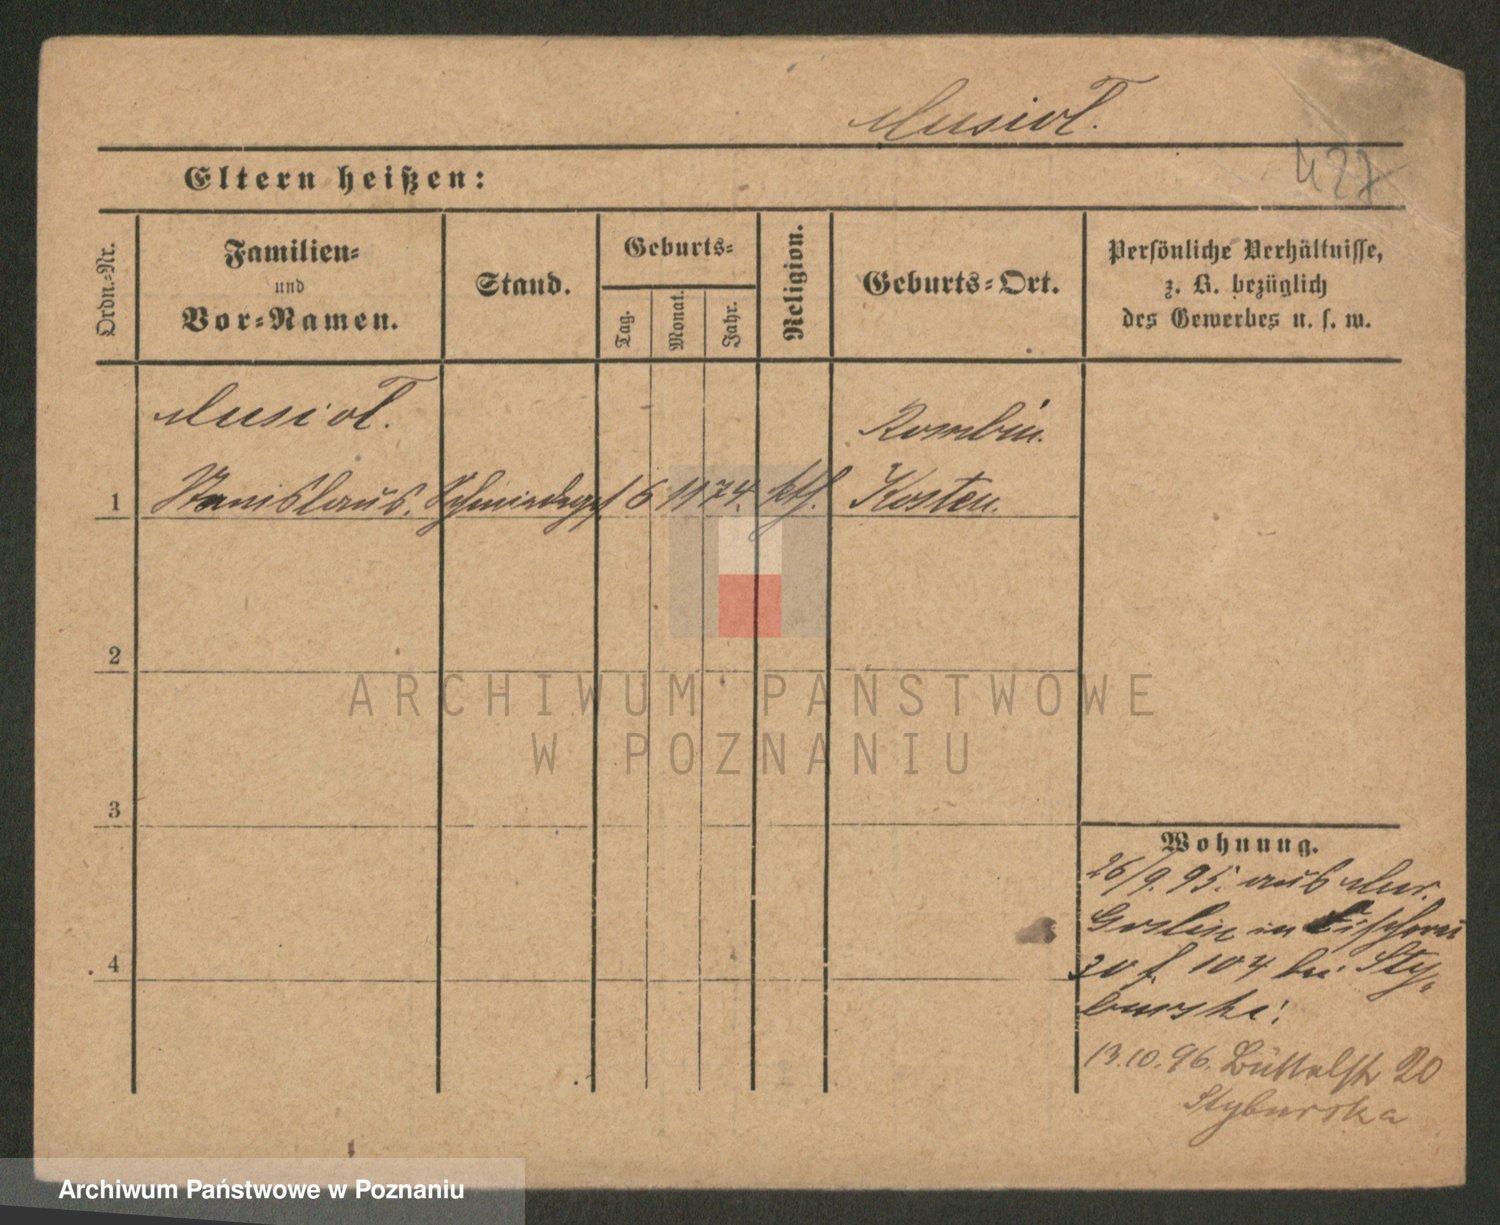 Musiol.
427
Eltern heißen:
Ordn.-Nr.
Familien-
und
Vor-Namen.
Stand.
Geburts-
Tag.
Monat.
Jahr.
Religion.
Geburts-Ort.
Persönliche Verhältnisse,
z. B. bezüglich
des Gewerbes u. s. w.
Musiol.
Rombin.
1 Stanislaus. Schmiedeges 6 11 74. kth. Kosten.
2
3
4
ARCHIWUM PAŃSTWOWE
W POZNANIU
Wohnung.
26/9. 95. aus Mur.
Goslin in
f. 104 bei Sty-
burski.
13.10.96. Büttelstr 20
Styburska
Archiwum Państwowe w Poznaniu